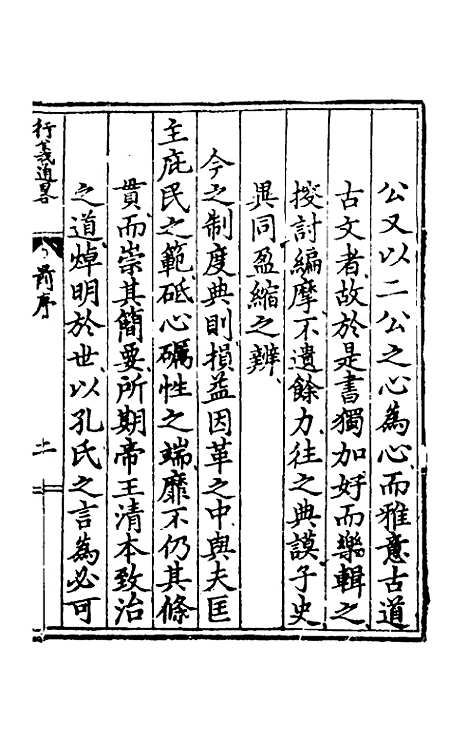 公又以二公之心為心而雅意古道
古文者故於是書獨加好而樂輯之
搜討編摩不遺餘力往之典謨子史
異同盈縮之辨
今之制度典則損益因革之中與夫匡
主庇民之範砥心礪性之端靡不仍其條
貫而崇其簡要所期帝王清本致治
之道焯明於世以孔氏之言為必可
行義通畧
前序
十一